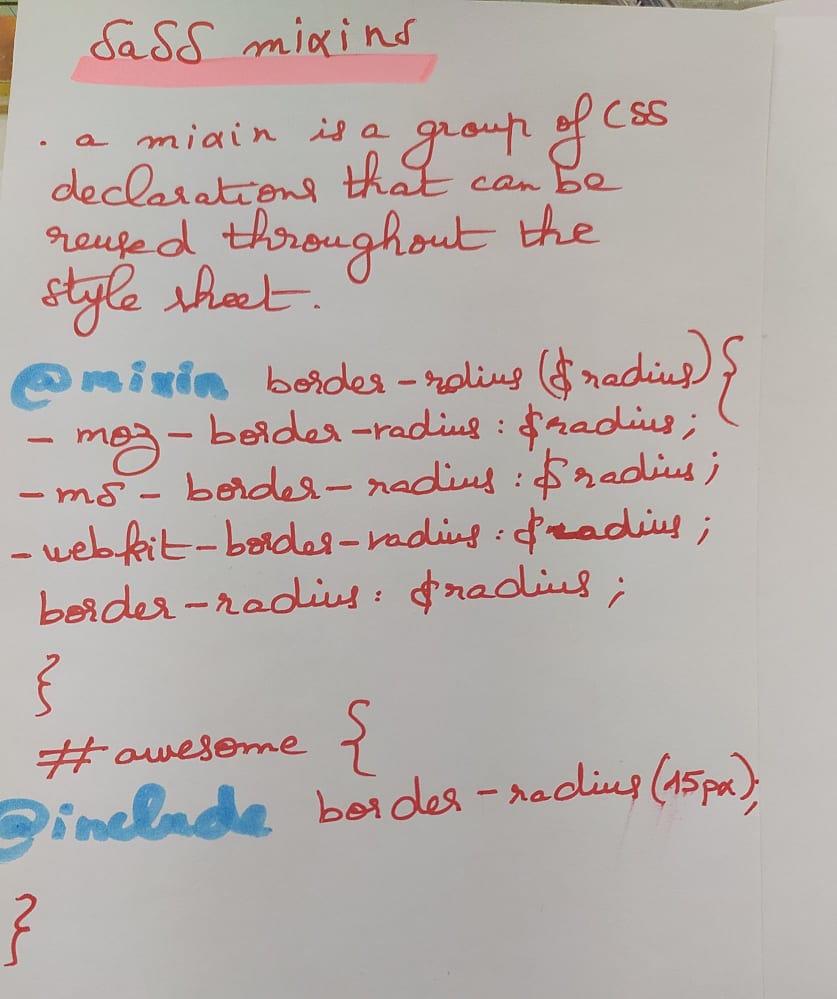 SaSS mixins
. a mixin is a group of CSS
declarations that can be
reused throughout the
style sheet.
@mixin border-rdius ($radius){
- moz - border-radius : $radius;
- ms - border - radius : $radius;
- webkit - border - radius : $radius;
border - radius : $radius;
}
#awesome {
@include border - radius (15px);
}